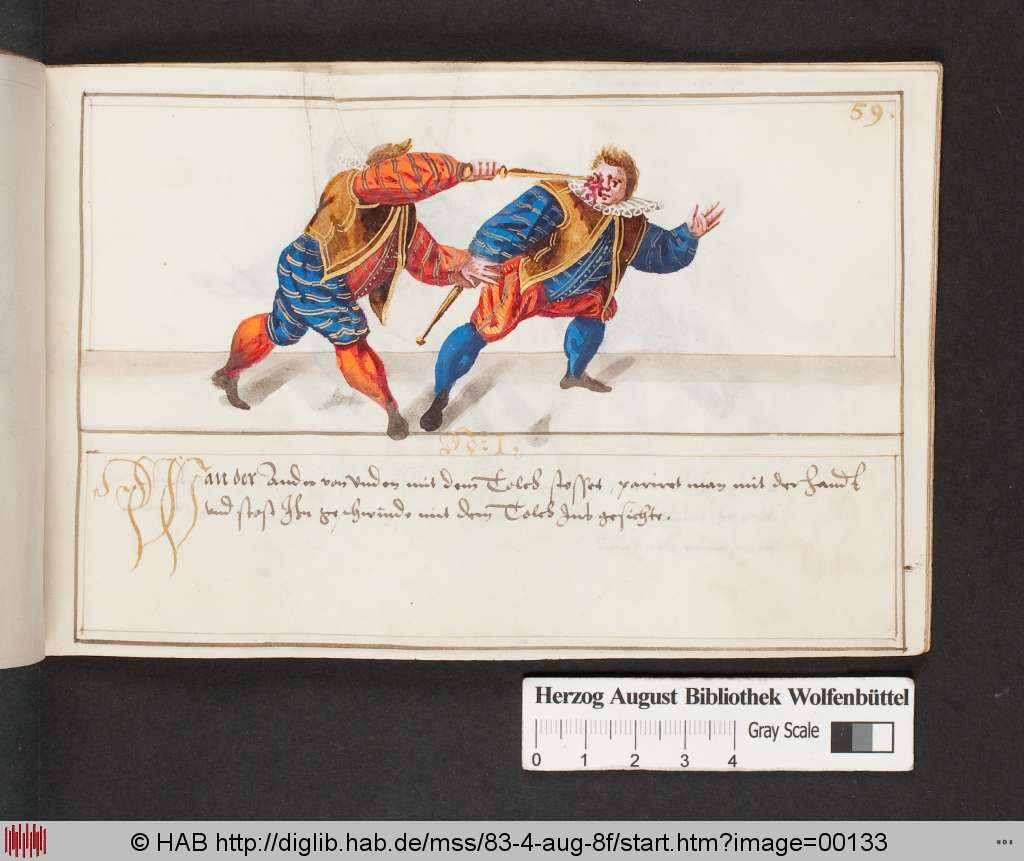 59.
N: 1:
Wan der Ander von Unden mit dem Tolch stosset, pariret man mit der Handt
und stost Ihn geschwinde mit dem Tolch Ins gesichte.
Herzog August Bibliothek Wolfenbüttel
Gray Scale
0 1 2 3 4
© HAB http://diglib.hab.de/mss/83-4-aug-8f/start.htm?image=00133